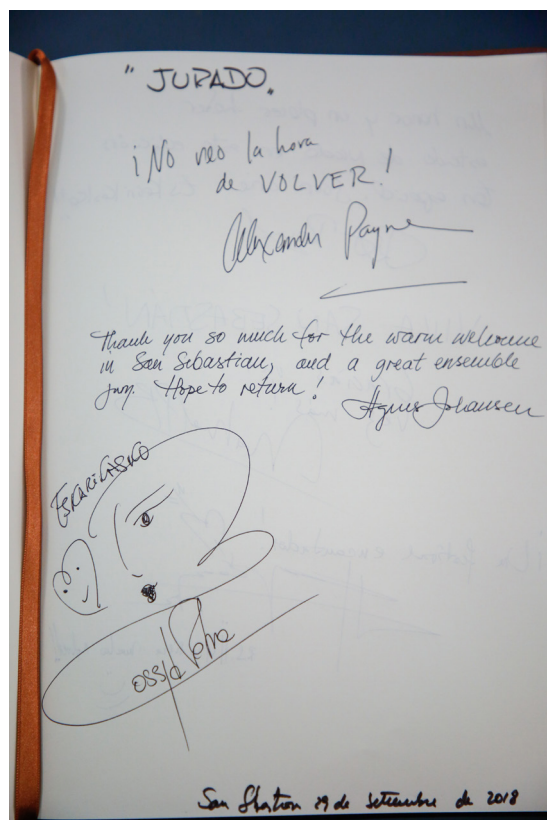 "JURADO"
¡No veo la hora
de VOLVER!
Alexander Payne
Thank you so much for the warm welcome
in San Sebastian, and a great ensemble
jury. Hope to return!
Agnes Johansen
ESKARRIKASKO
Rossy de Palma
San Sebastian 29 de setiembre de 2018